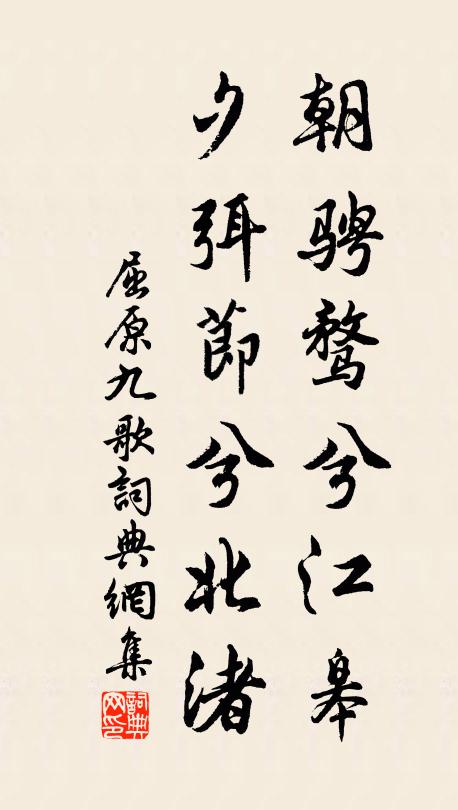 朝骋鶩兮江皋
夕弭節兮北渚
屈原九歌詞典網集
詞典网印